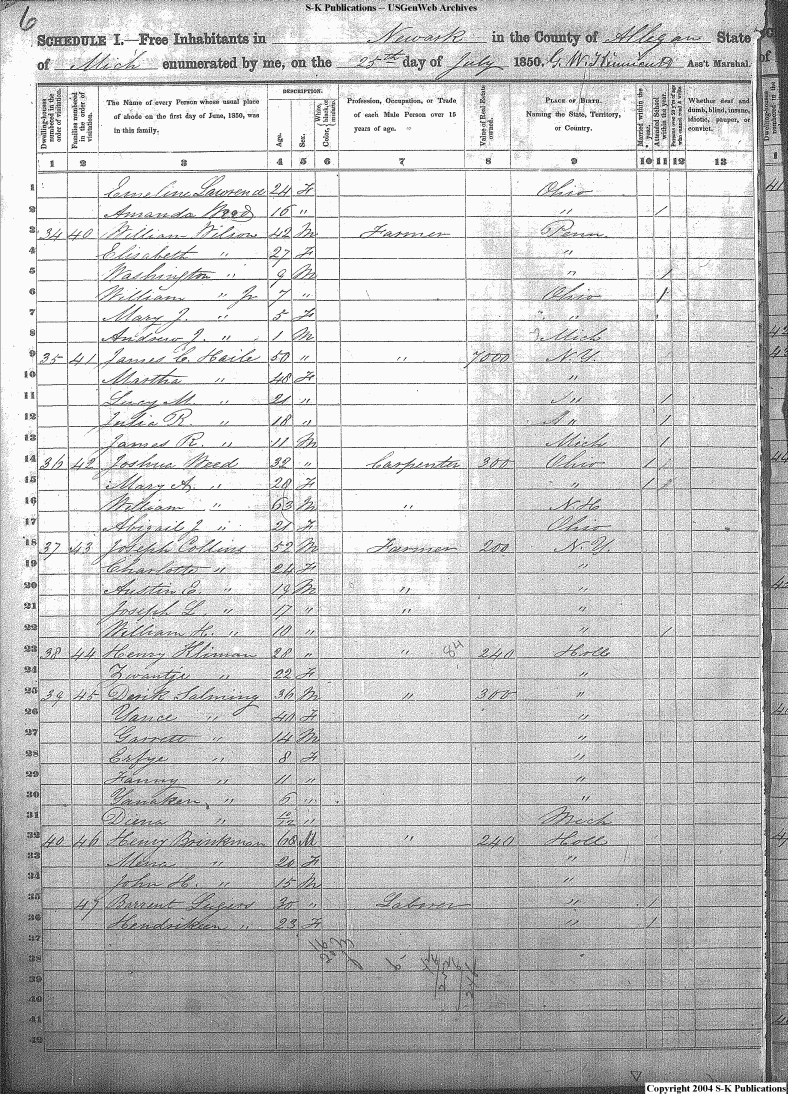 S-K Publications – USGenWeb Archives
6
SCHEDULE I.—Free Inhabitants in Newark in the County of Allegan State
of Mich enumerated by me, on the 25th day of July 1850. G. W. Ass't Marshal.
Dwelling-houses numbered in the order of visitation.
Families numbered in the order of visitation.
The Name of every Person whose usual place of abode on the first day of June, 1850, was in this family.
DESCRIPTION.
Age.
Sex.
Color, { White, black, or mulatto.
Profession, Occupation, or Trade of each Male Person over 15 years of age.
Value of Real Estate owned.
PLACE OF BIRTH. Naming the State, Territory, or Country.
Married within the year.
Attended School within the year.
Persons over 20 y'rs of age who cannot read & write.
Whether deaf and dumb, blind, insane, idiotic, pauper, or convict.
1 2 3 4 5 6 7 8 9 10 11 12 13
1 Emeline Lawrence 24 F Ohio
2 Amanda Weed 16 " " /
3 34 40 William Wilson 42 M Farmer Penn
4 Elisabeth " 27 F "
5 Washington " 9 M " /
6 William " Jr 7 " Ohio /
7 Mary J. " 5 F "
8 Andrew J. " 1 M Mich
9 35 41 James C. Haile 50 " " 7000 N.Y.
10 Martha " 48 F "
11 Lucy M. " 21 " " /
12 Julia R. " 18 " " /
13 James R. " 11 M Mich /
14 36 42 Joshua Weed 32 " Carpenter 300 Ohio 1 /
15 Mary A. " 20 F " 1
16 William " 63 M " N.H.
17 Abigail J " 21 F Ohio
18 37 43 Joseph Collins 52 M Farmer 200 N.Y.
19 Charlotte " 24 F "
20 Austin E. " 19 M " "
21 Joseph L " 17 " " "
22 William H. " 10 " " /
23 38 44 Henry Kliman 28 " " 84 240 Holl
24 Zwantje " 22 F "
25 39 45 Derik Salming 36 M " 300 "
26 Yance " 40 F "
27 Garrett " 14 M "
28 " 8 F "
29 Fanny " 11 " "
30 Yanaken " 6 " "
31 Diena " 10/12 " Mich
32 40 46 Henry Brinkman 68 M " 240 Holl
33 Mena " 20 F "
34 John H. " 15 M "
35 47 Barrent Slegers 30 " Laborer " 1
36 Hendrikeen " 23 F " 1
37
38
39
40
41
42
Copyright 2004 S-K Publications